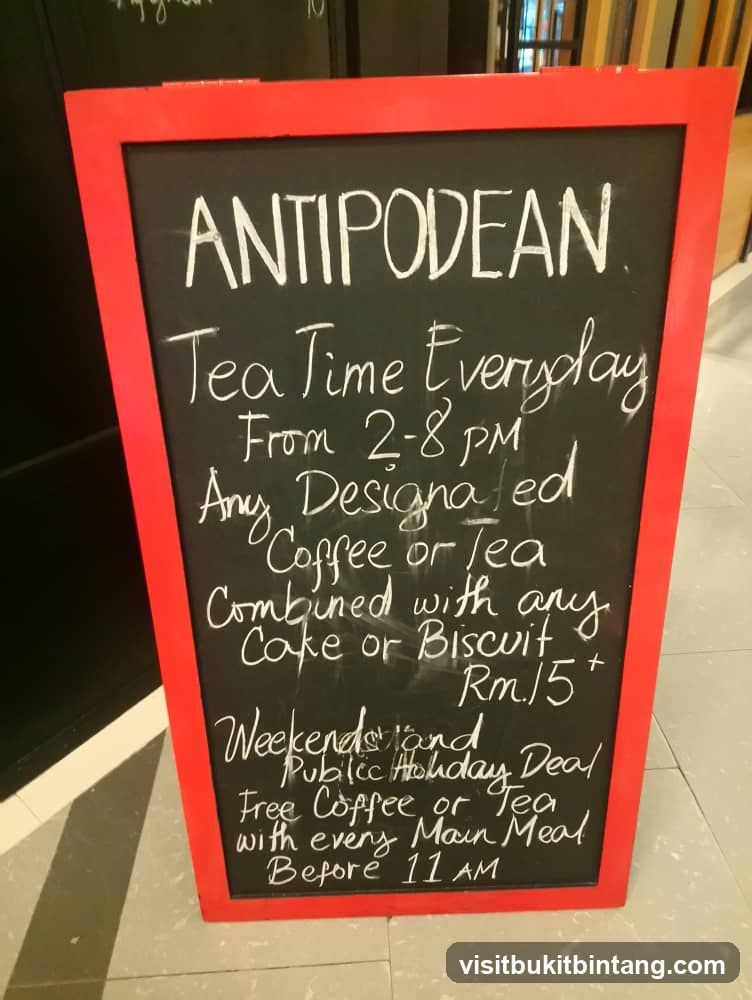 ANTIPODEAN
Tea Time Everyday
From 2-8 PM
Any Designated
Coffee or Tea
Combined with any
Cake or Biscuit
Rm.15+
Weekends and
Public Holiday Deal
Free Coffee or Tea
with every Main Meal
Before 11 AM
visitbukitbintang.com